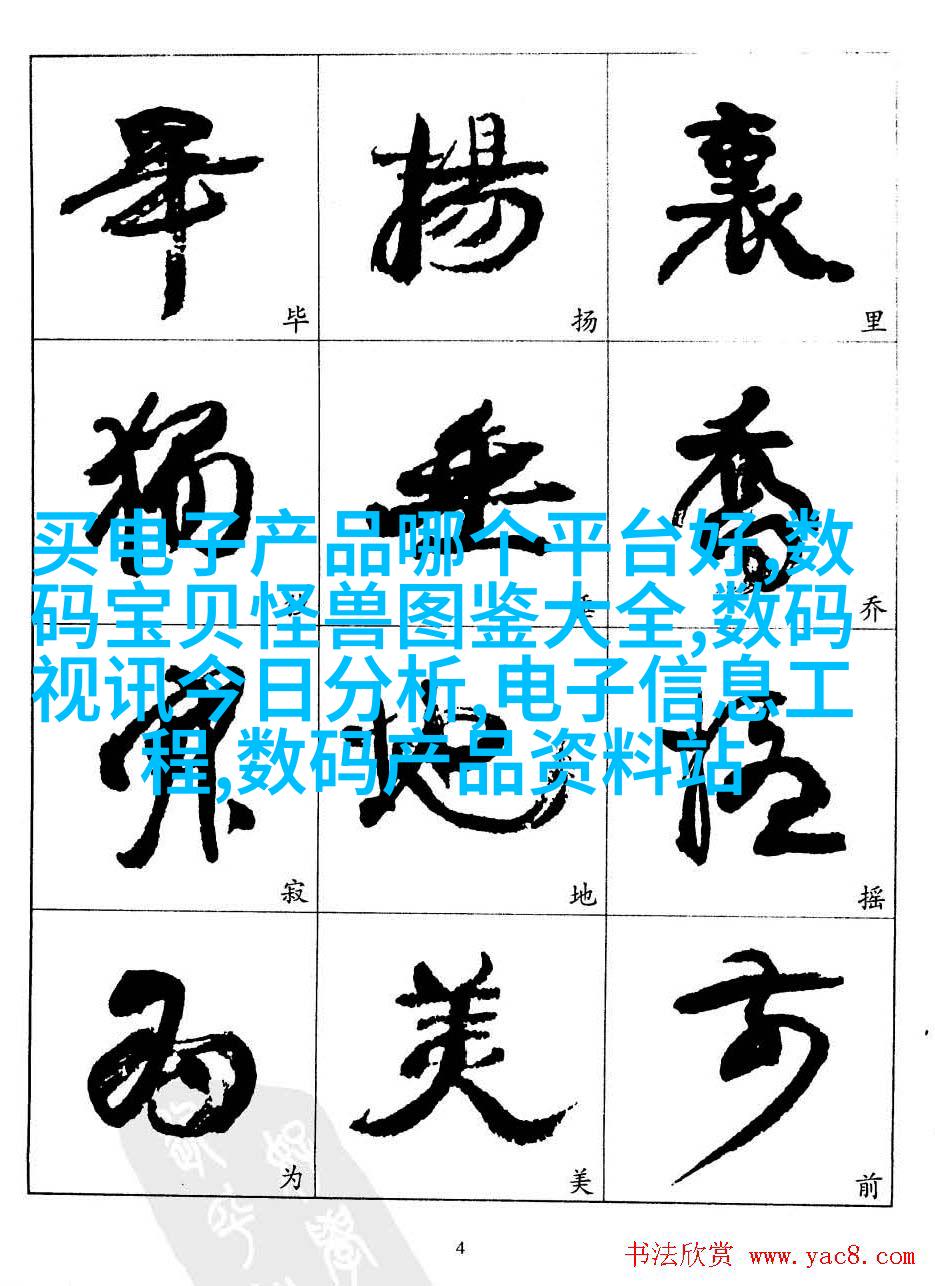 畢 揚 裏
毕 扬 里
獨 垂 喬
乔
买电子产品哪个平台好,数
码宝贝怪兽图鉴大全,数码
视讯今日分析,电子信息工
程,数码产品资料站
地
寂 地 摇
为 美 前
为 美 前
4
书法欣赏 www.yac8.com